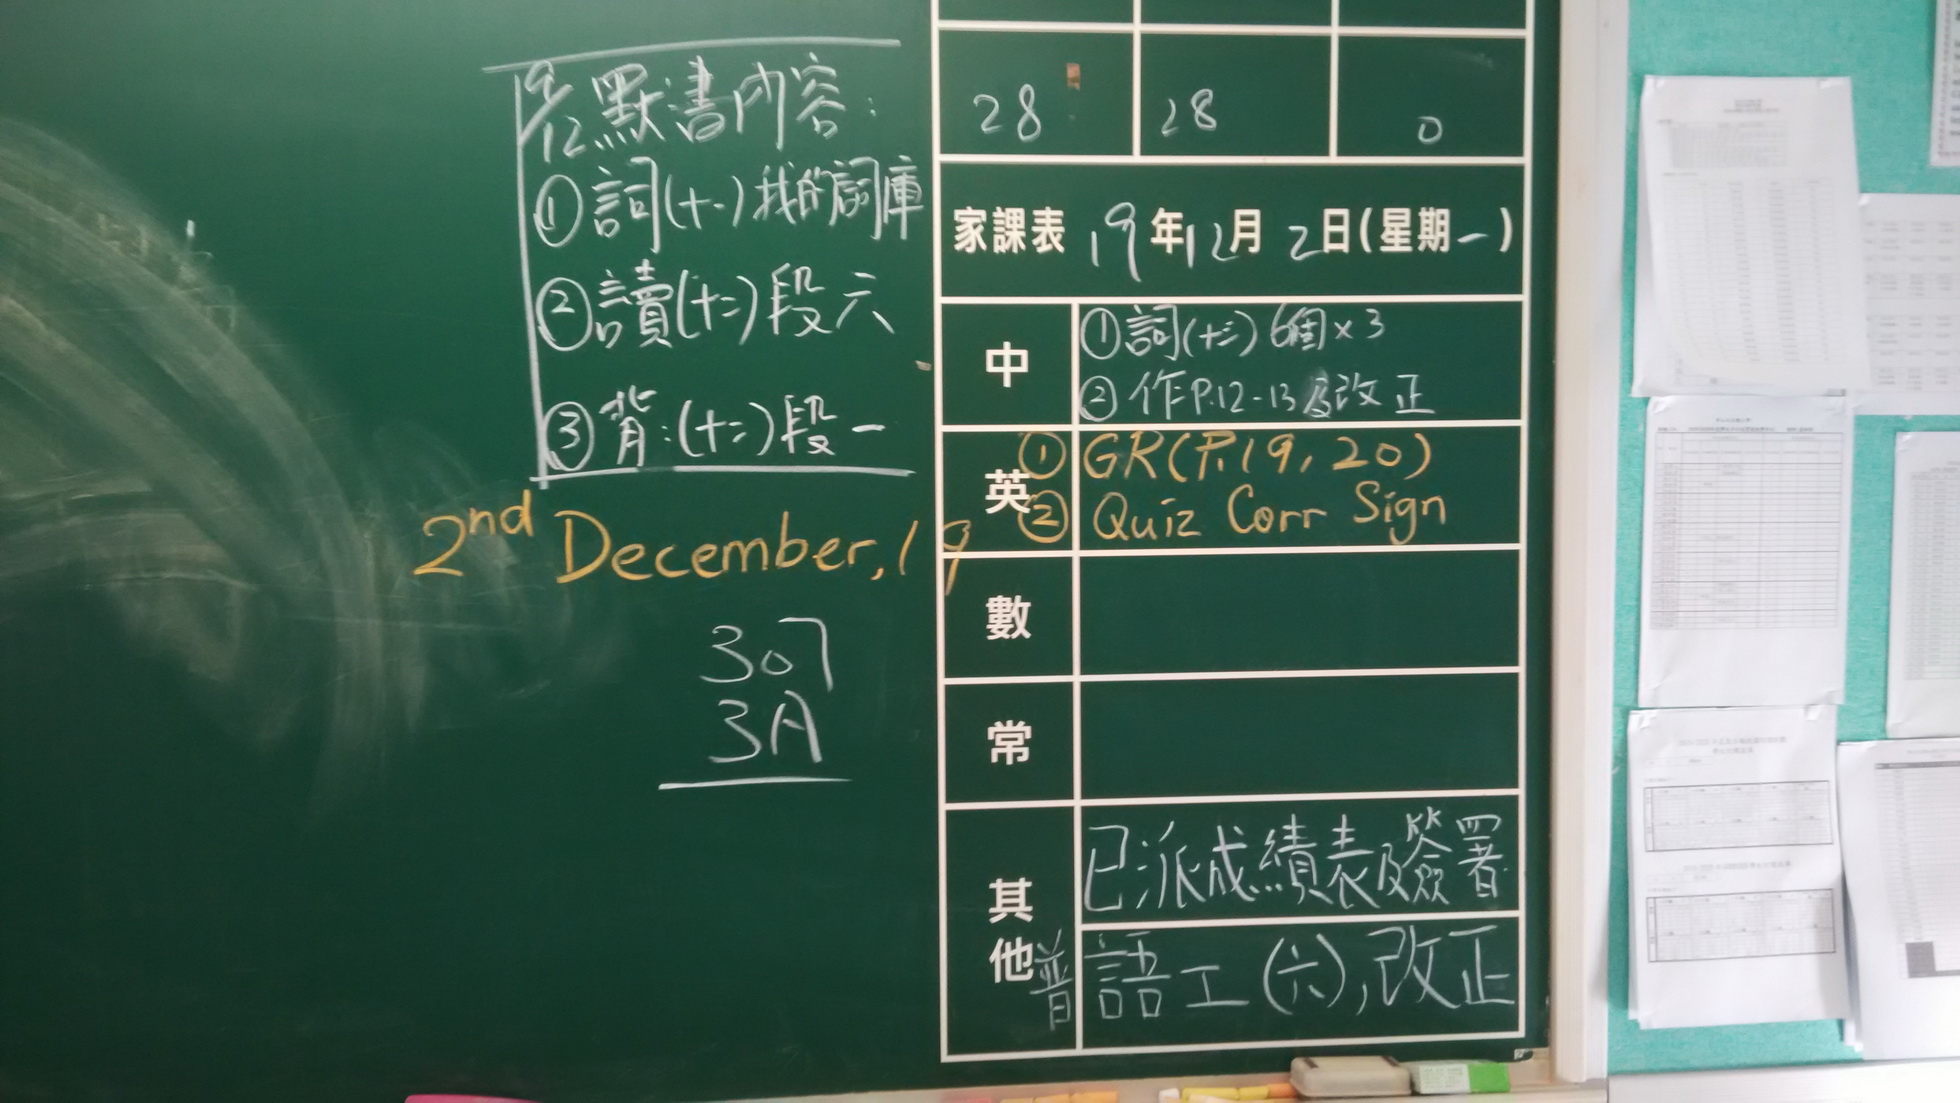 9/12 默書內容:
① 詞(十一)我的詞庫
② 讀(十二)段六
③ 背:(十二)段一
2nd December, 19
307
3A
28 28 0
家課表 19年12月2日(星期一)
中 ① 詞(十三) 6個×3
② 作P.12-13及改正
英 ① GR(P.19, 20)
② Quiz Corr Sign
數
常
其他 已派成績表及簽署
普 語工(六),改正